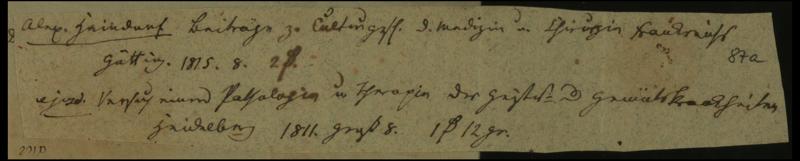 Alex. Haindorf Beiträge z. Culturgesch. d. Medizin u. Chirurgie Frankreichs
87a
Götting. 1815. 8. 2
ejusd. Versuch einer Pathologie u Therapie der Geistes- u Gemüthskrankheiten
Heidelberg 1811. groß 8. 1 12 gr.